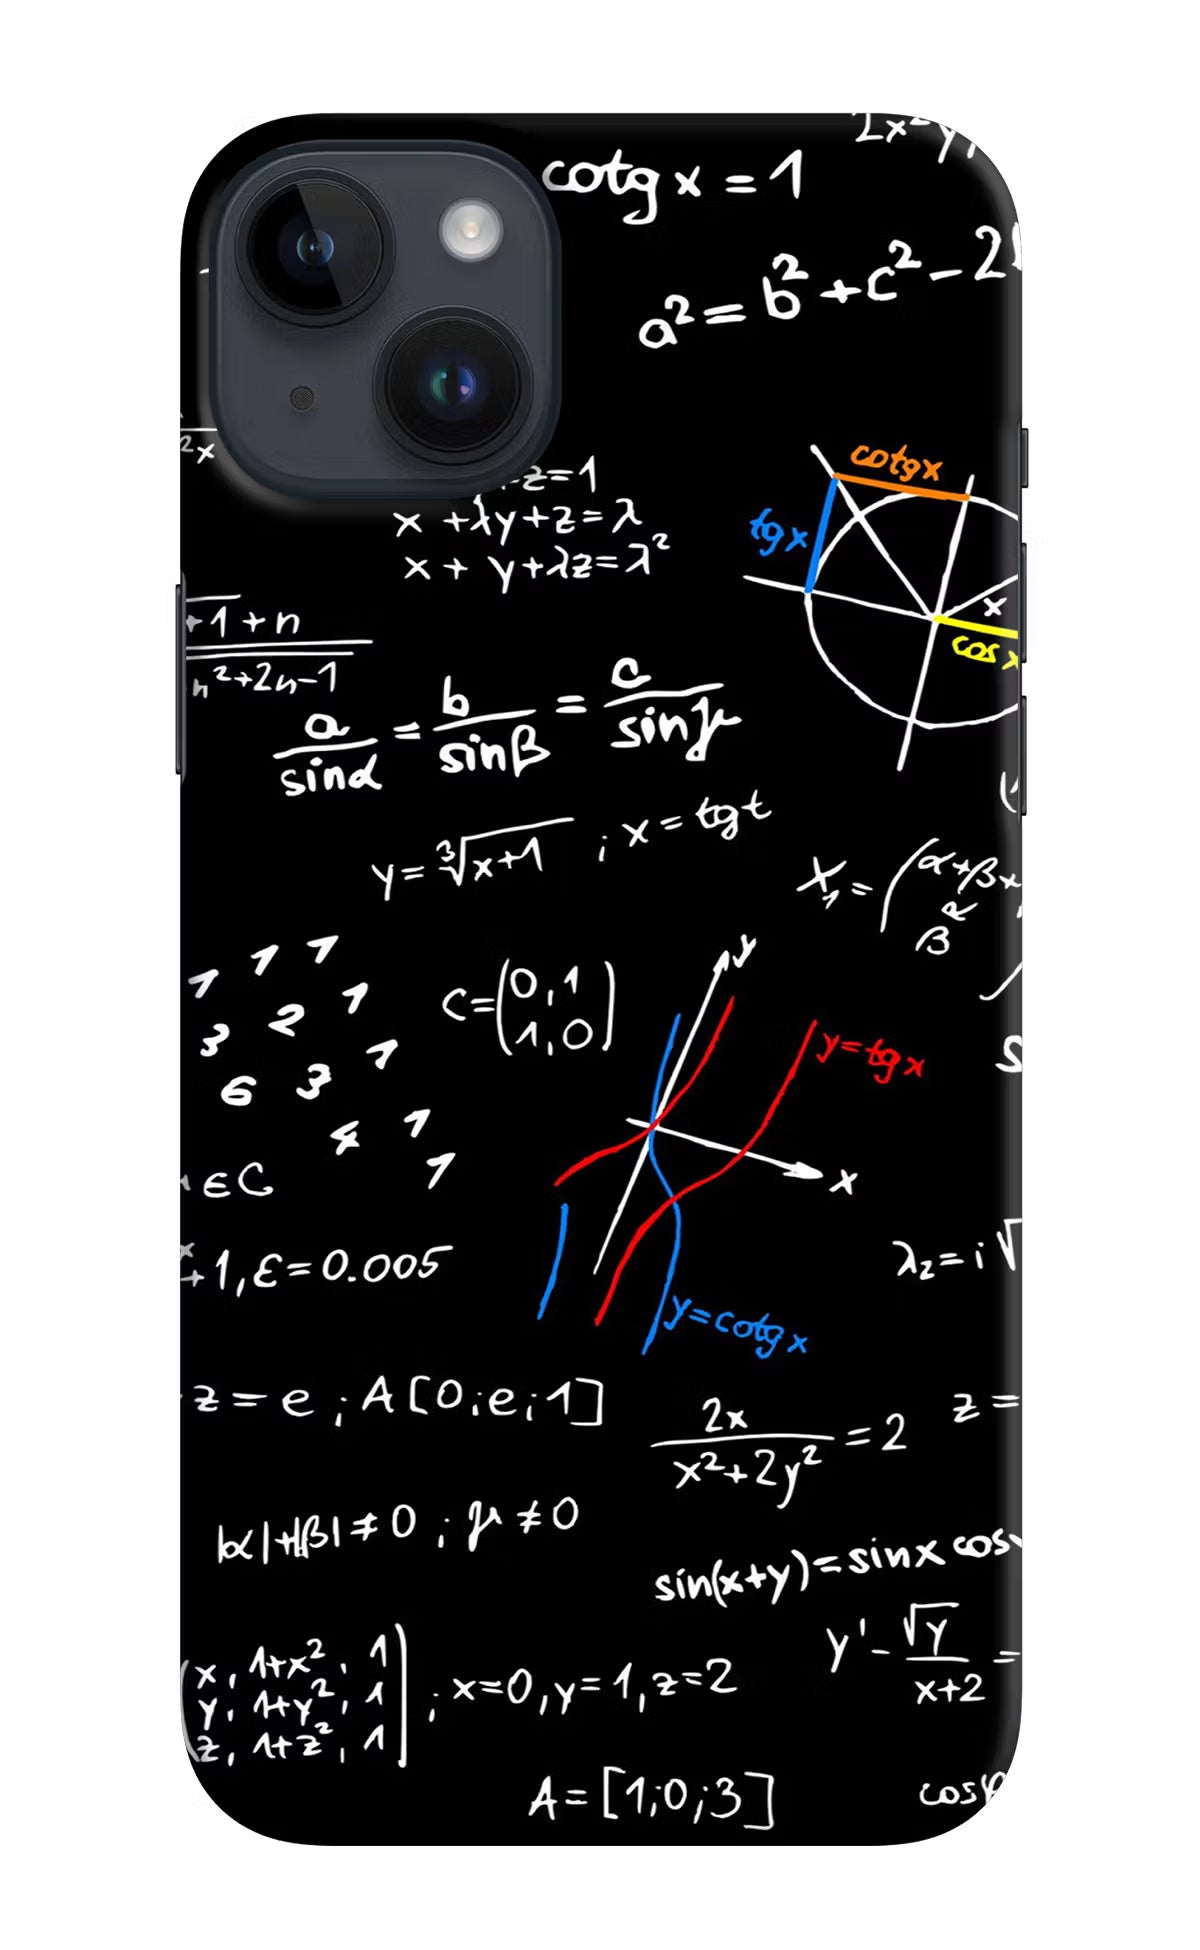 2x²y
cotg x = 1
a² = b² + c² - 2
2x
z=1
x + λy + z = λ
x + y + λz = λ²
cotgx
tgx
x
cos x
+1 + n
n²+2n-1
a/sinα = b/sinβ = c/sinγ
y = ∛x+1 ; x = tgt
X₁ = (α+β+
β R
1 1 1
3 2 1
6 3 1
4 1
1
C = (0,1
1,0)
y
y=tgx
x
εC
+1, ε=0.005
λ₂ = i√
y=cotgx
z = e ; A[0;e;1]
2x/x²+2y² = 2
z =
|α|+|β| ≠ 0 ; μ ≠ 0
sin(x+y) = sinx cos
y' - √y/x+2 =
x, 1+x², 1
y, 1+y², 1
z, 1+z², 1
; x=0, y=1, z=2
A = [1;0;3]
cosφ